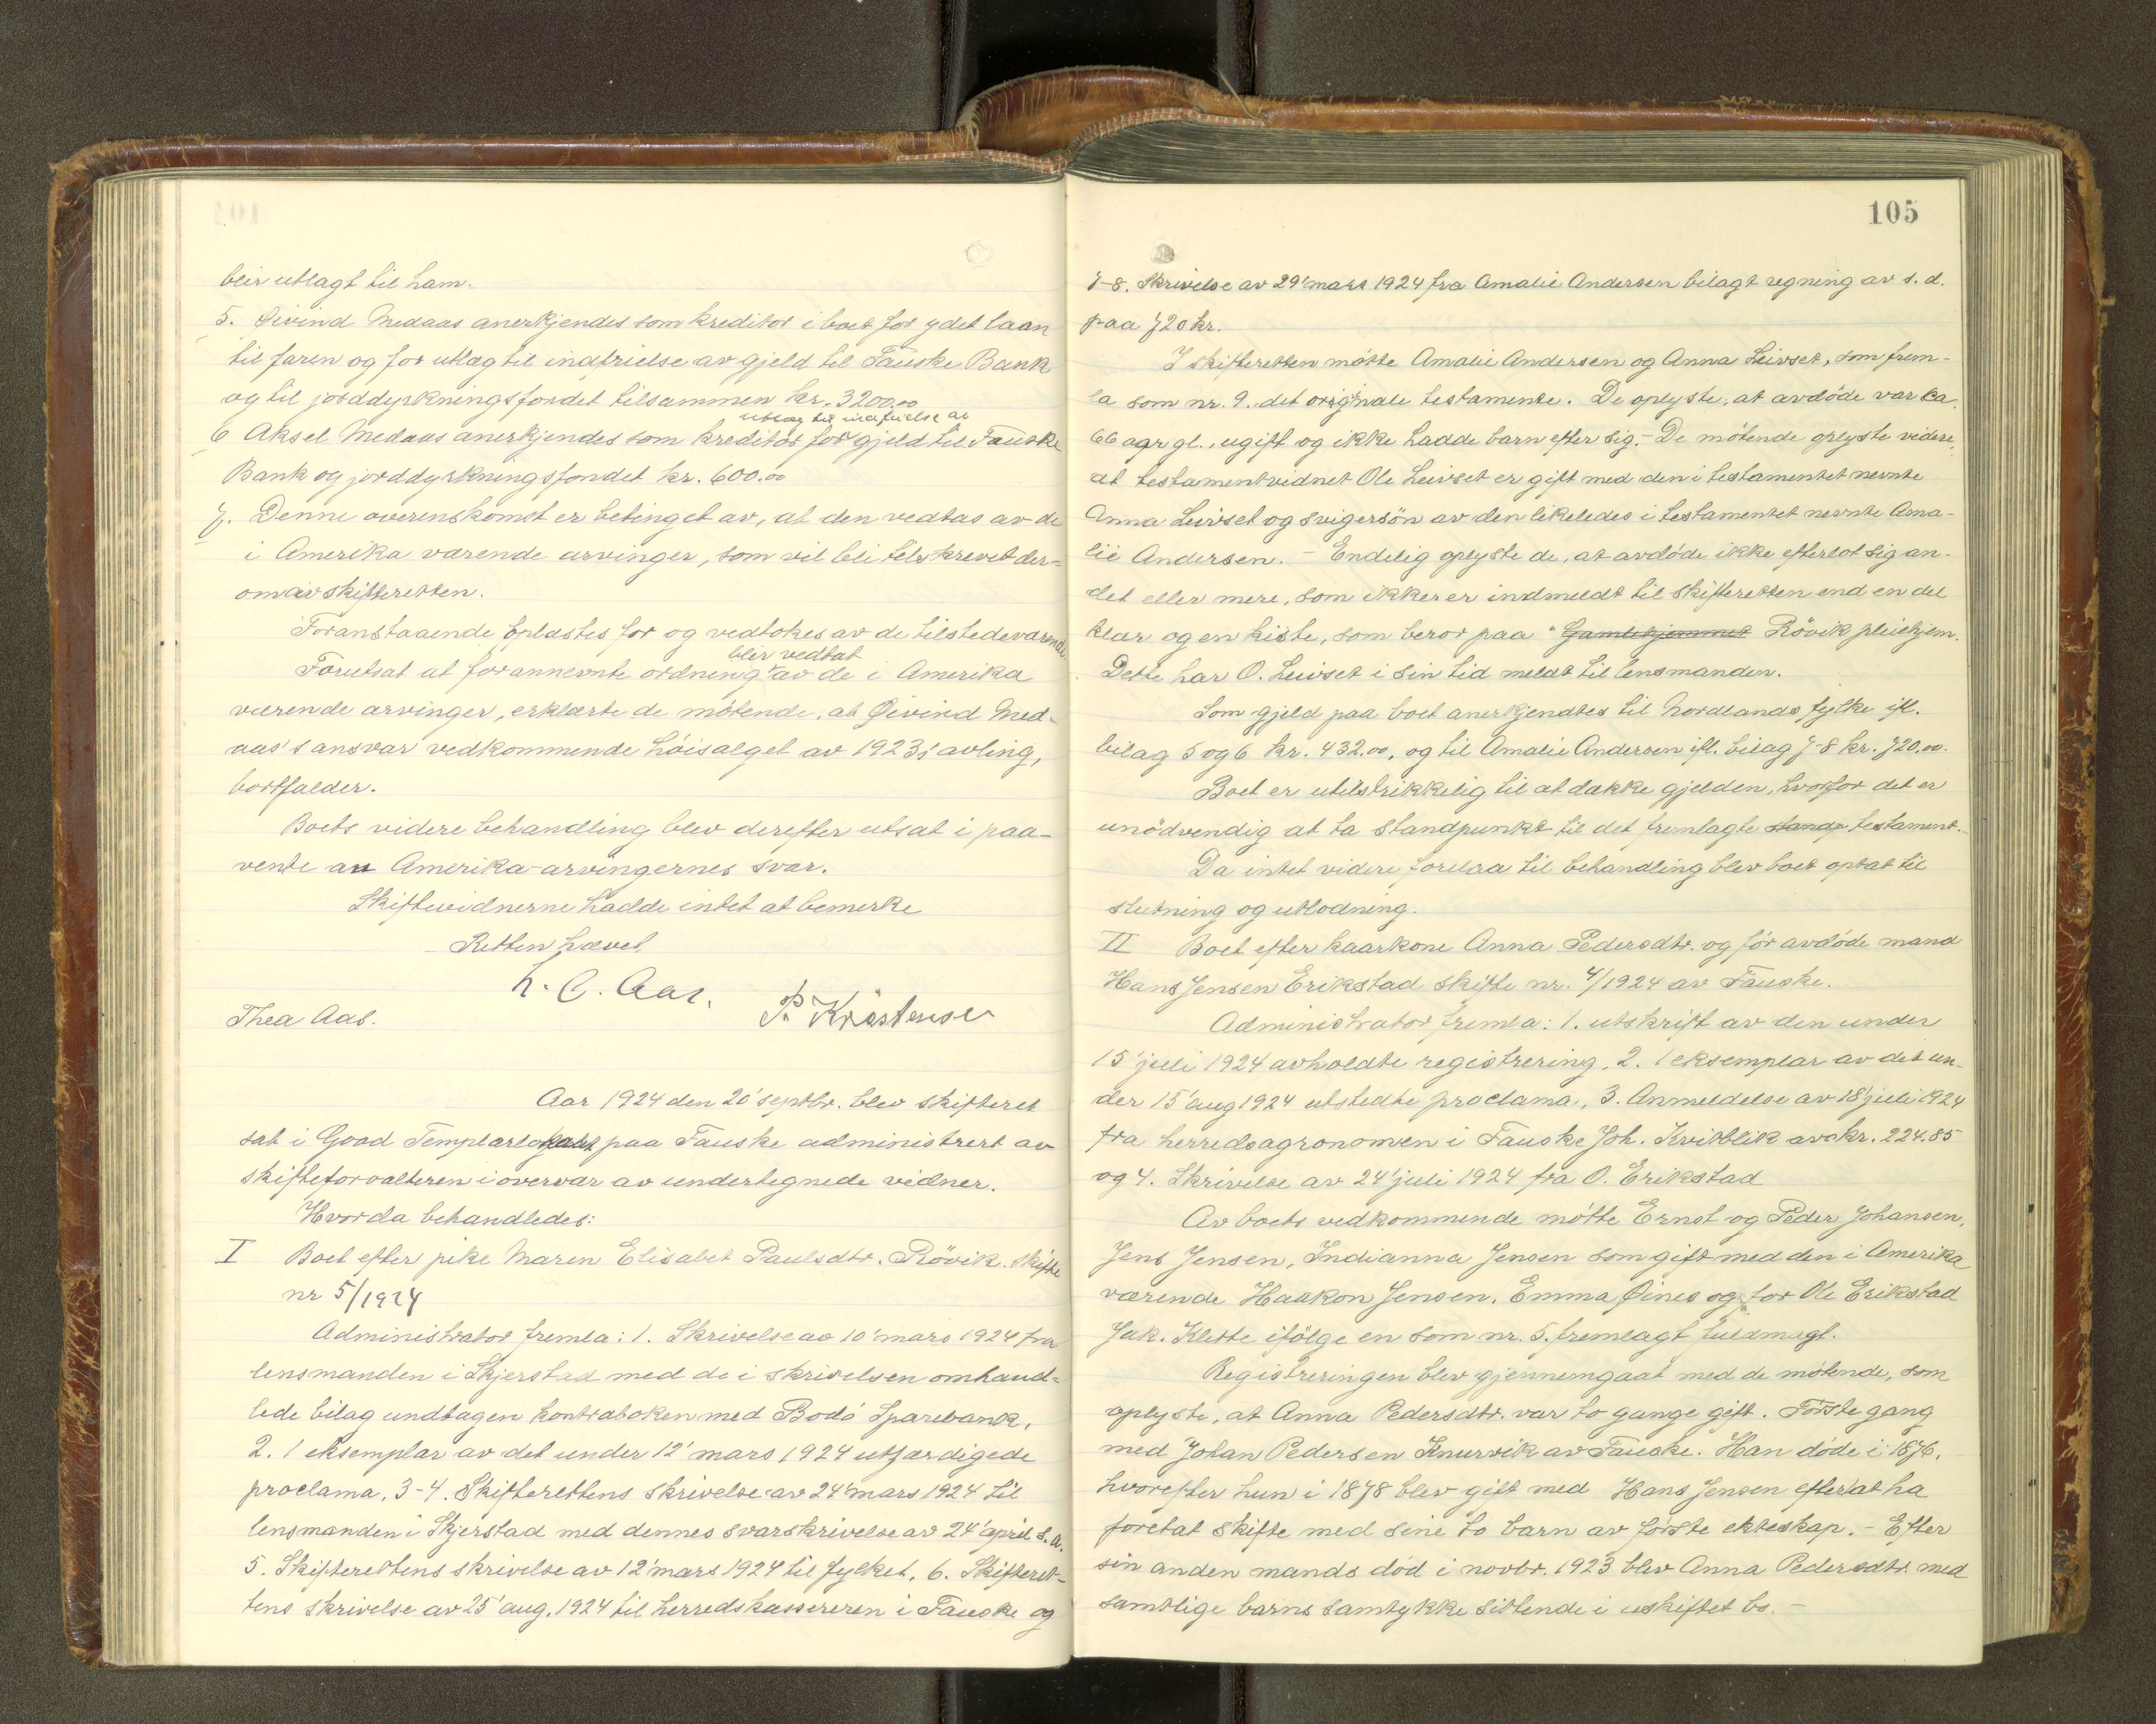 blir utlagt til ham.
5. Øivind Medaas anerkjendes som kreditor i boet for ydet laan
til faren og for utlæg til indfrielse av gjeld til Fauske Bank
og til jorddyrkningsfondet tilsammen kr. 3200.00
utlæg til indfrielse av
6 Aksel Medaas anerkjendes som kreditor for gjeld til Fauske
Bank og jorddyrkningsfondet kr. 600.00
7. Denne overenskomst er betinget av, at den vedtas av de
i Amerika værende arvinger, som vil bli tilskrevet der-
om av skifteretten.
Foranstaaende oplæstes for og vedtokes av de tilstedeværende.
blir vedtat
Forutsat at forannevnte ordning av de i Amerika
værende arvinger, erklærte de møtende, at Øivind Med-
aas's ansvar vedkommende høisalget av 1923s' avling,
bortfalder.
Boets videre behandling blev derefter utsat i paa-
vente av Amerika-arvingernes svar.
Skiftevidnerne hadde intet at bemerke
Retten hævet
H. C. Aar.
Thea Aas. P. Kristensen
Aar 1924 den 20' septbr. blev skifteret
sat i Good Templarlokalet paa Fauske administrert av
skifteforvalteren i overvær av undertegnede vidner.
Hvor da behandledes:
I Boet efter pike Maren Elisabet Paulsdtr. Røvik. Skifte
nr 5/1924
Administrator fremla: 1. Skrivelse av 10' mars 1924 fra
lensmanden i Skjerstad med de i skrivelsen omhand-
lede bilag undtagen kontraboken med Bodø Sparebank,
2. 1 eksemplar av det under 12' mars 1924 utfærdigede
proclama, 3-4. Skifterettens skrivelse av 24' mars 1924 til
lensmanden i Skjerstad med dennes svarskrivelse av 24' april s.a.
5. Skifterettens skrivelse av 12' mars 1924 til fylket, 6. Skifteret-
tens skrivelse av 25' aug. 1924 til herredskassereren i Fauske og
105
7-8. Skrivelse av 29' mars 1924 fra Amalie Andersen bilagt regning av s. d.
paa 720 kr.
I skifteretten møtte Amalie Andersen og Anna Leivset, som frem-
la som nr. 9. det originale testamente. De oplyste, at avdøde var ca.
66 aar gl., ugift og ikke hadde barn efter sig. - De møtende oplyste videre,
at testamentvidnet Ole Leivset er gift med den i testamentet nevnte
Anna Leivset og svigersøn av den likeledes i testamentet nevnte Ama-
lie Andersen. - Endelig oplyste de, at avdøde ikke efterlot sig an-
det eller mere, som ikke er indmeldt til skifteretten end en del
klær og en kiste, som beror paa "Gamlehjemmet Røvik pleiehjem.
Dette har O. Leivset i sin tid meldt til lensmanden.
Som gjeld paa boet anerkjendtes til Nordlands fylke ifl.
bilag 5 og 6 kr. 432.00, og til Amalie Andersen ifl. bilag 7-8 kr. 720.00.
Boet er utilstrikkelig til at dække gjelden, hvorfor det er
unødvendig at ta standpunkt til det fremlagte testament.
Da intet videre forelaa til behandling blev boet optat til
slutning og utlodning.
II Boet efter kaarkone Anna Pedersdtr. og før avdøde mand
Hans Jensen Erikstad skifte nr. 4/1924 av Fauske.
Administrator fremla: 1. utskrift av den under
15' juli 1924 avholdte registrering, 2. 1 eksemplar av det un-
der 15' aug 1924 utstedte proclama, 3. Anmeldelse av 18' juli 1924
fra herredsagronomen i Fauske Joh. Kvitblik av kr. 224.85
og 4. Skrivelse av 24' juli 1924 fra O. Erikstad
Av boets vedkommende møtte Ernst og Peder Johansen,
Jens Jensen, Indianna Jensen som gift med den i Amerika
værende Haakon Jensen, Emma Øines og for Ole Erikstad
Jak. Klette ifølge en som nr. 5. fremlagt fuldmagt.
Registreringen blev gjennemgaat med de møtende, som
oplyste, at Anna Pedersdtr. var to gange gift. Første gang
med Johan Pedersen Knurvik av Fauske. Han døde i 1876,
hvorefter hun i 1878 blev gift med Hans Jensen efter at ha
foretat skifte med sine to barn av første ekteskap. - Efter
sin anden mands død i novbr. 1923 blev Anna Pedersdtr. med
samtlige barns samtykke sittende i uskiftet bo. -